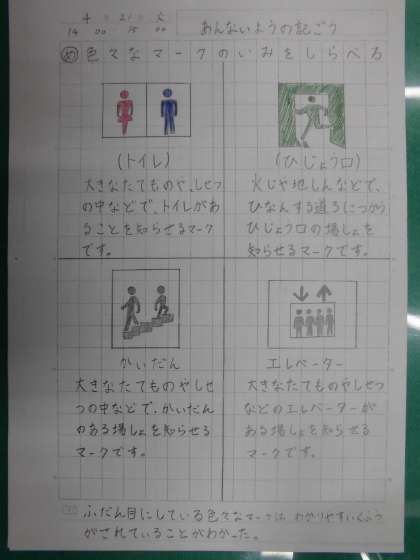 4 21 火
あんないようの記ごう
14 00 15 00
め 色々なマークのいみをしらべる
(トイレ)
大きなたてものや、しせつ
の中などで、トイレがあ
ることを知らせるマーク
です。
(ひじょう口)
火じや地しんなどで、
ひなんする道ろにつかう
ひじょう口の場しょを
知らせるマークです。
かいだん
大きなたてものやしせ
つの中などで、かいだん
のある場しょを知らせる
マークです。
エレベーター
大きなたてものやしせつ
などのエレベーターが
ある場しょを知らせる
マークです。
ふだん目にしている色々なマークは わかりやすいくふう
がされていることがわかった。